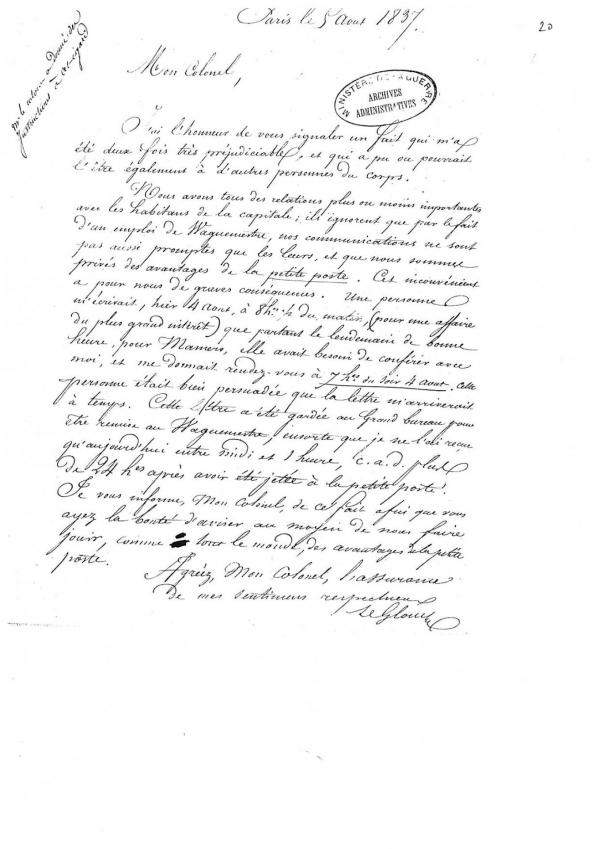 Paris le 5 Aout 1837.
20
Mr le colonel a donné des
instructions à cet égard
Mon Colonel,
MINISTÈRE DE LA GUERRE
ARCHIVES
ADMINISTRATIVES
J'ai l'honneur de vous signaler un fait qui m'a
été deux fois très préjudiciable, et qui a pu ou pourrait
l'être également à d'autres personnes du corps.
Nous avons tous des relations plus ou moins importantes
avec les habitans de la capitale; ils ignorent que par le fait
d'un emploi de Waguemestre, nos communications ne sont
pas aussi promptes que les leurs, et que nous sommes
privés des avantages de la petite poste. Cet inconvénient
a pour nous de graves conséquences. Une personne
m'écrivait, hier 4 aout, à 8hres ½ du matin, (pour une affaire
du plus grand intérêt) que partant le lendemain de bonne
heure, pour Mamers, elle avait besoin de conférer avec
moi, et me donnait rendez-vous à 7 hres du soir 4 aout. Cette
personne était bien persuadée que la lettre m'arriverait
à temps. Cette lettre a été gardée au Grand bureau pour
être remise au Waguemestre ensorte que je ne l'ai reçue
qu'aujourd'hui entre midi et 1 heure, c.a.d. plus
de 24 hres après avoir été jettée à la petite poste.
Je vous informe, Mon Colonel, de ce fait afin que vous
ayez la bonté d'aviser au moyen de nous faire
jouir, comme tout le monde, des avantages de la petite
poste.
Agréez, Mon Colonel, l'assurance
de mes sentimens respectueux